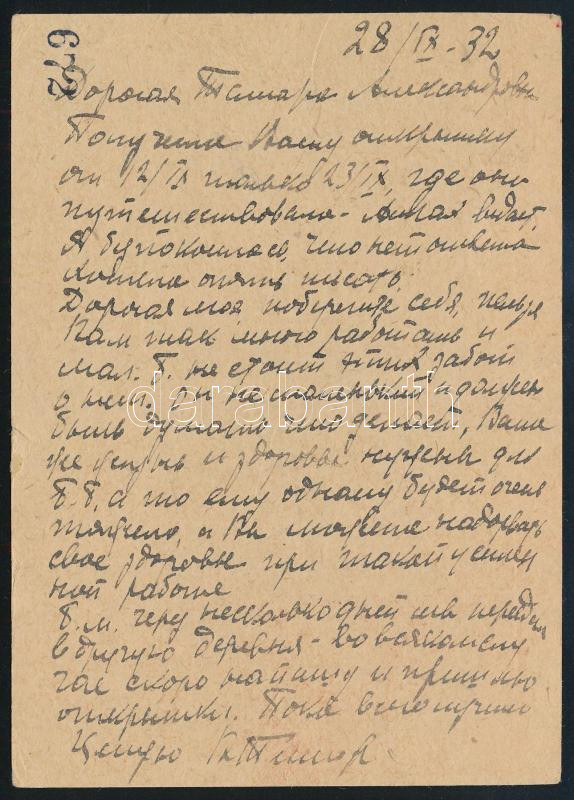 672
28/IX-32
Дорогая Тамара Александровна
Получила Вашу открытку
от 12/IX только 23/IX, где она
путешествовала - Аллах ведает.
Я беспокоилась, что нет ответа
хотела опять писать.
Дорогая моя поберегите себя, нельзя
Вам так много работать и
мал. Б. не стоит этих забот
о нем, он не маленький и должен
быть думать что делает, Ваша
же жизнь и здоровье нужны для
Б. Б. а то ему одному будет очень
тяжело, а Вы можете надорвать
свое здоровье при такой усилен
ной работе
Б. м. через несколько дней мы переедем
в другую деревню - во всяком случ.
скоро напишу и пришлю
открытки. Пока всего лучшего
Целую
darabanth